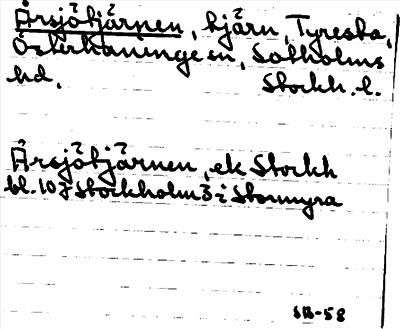 Årsjötjärnen, tjärn, Tyresta,
Österhaninge sn, Sotholms
hd, Stockh. l.
Årsjötjärnen, ek Stockh
bl. 10 J Stockholm 3 i Stormyra
SB-58